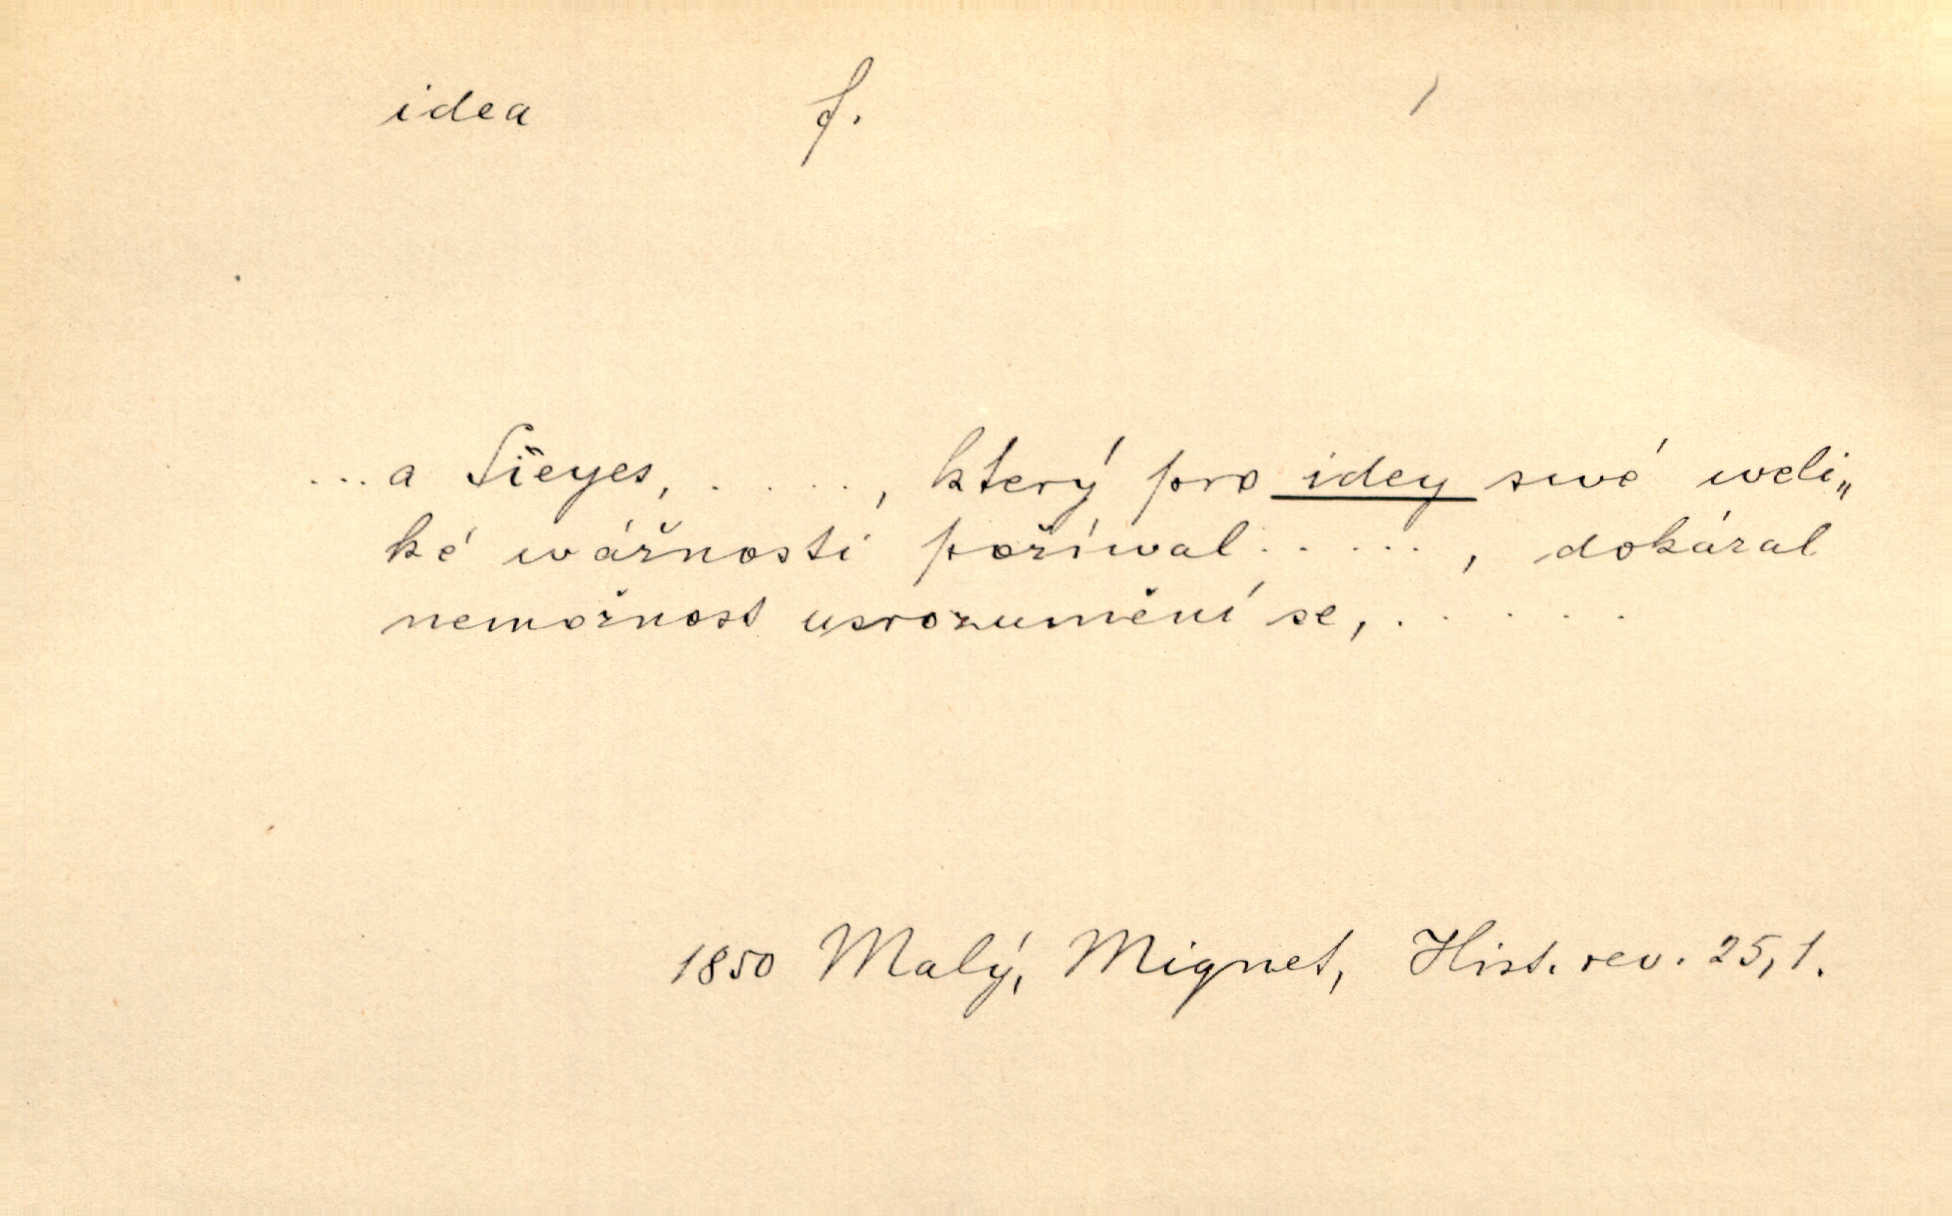 idea f. /
...a Sïeyes, ....., který pro idey swé weli„
ké wážnosti požíwal ....., dokázal
nemožnost usrozumění se, .....
1850 Malý, Mignet, Hist. rev. 25, 1.